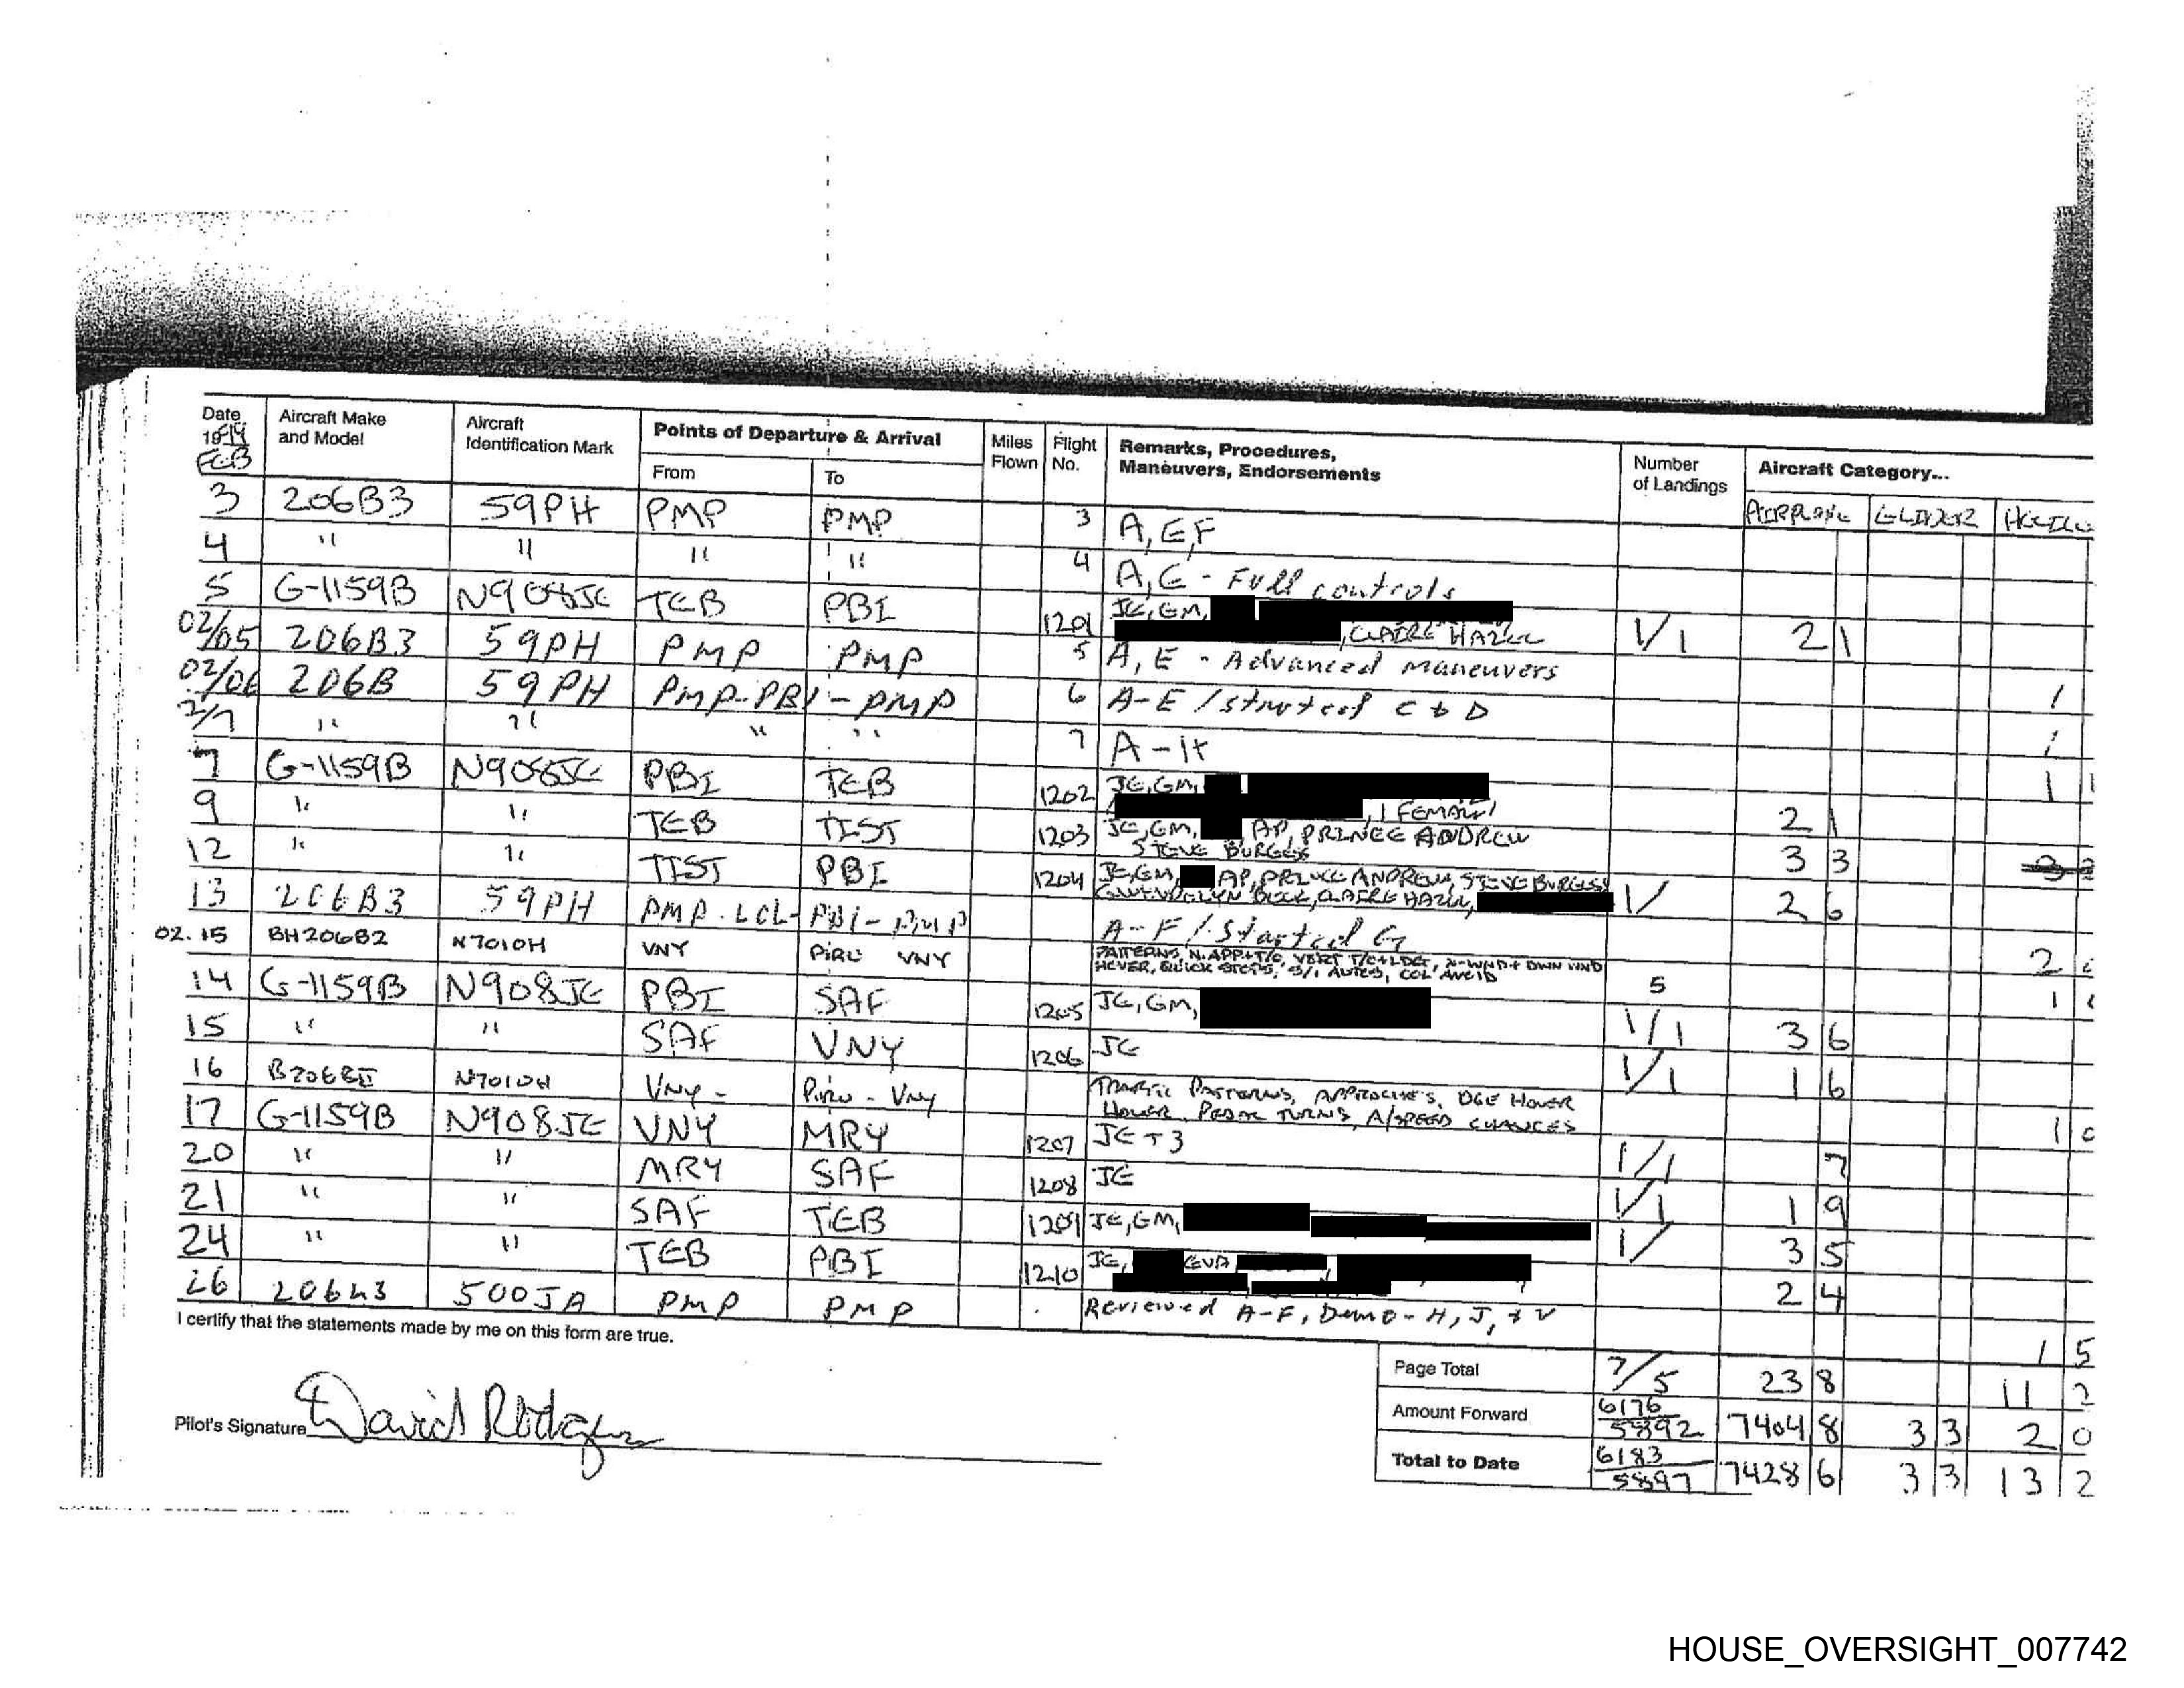 Date Aircraft Make and Model Aircraft Identification Mark Points of Departure & Arrival Miles Flown Flight No. Remarks, Procedures, Maneuvers, Endorsements Number of Landings Aircraft Category...
FEB From To AIRPLANE GLIDER
3 206B3 59PH PMP PMP 3 A, E, F
4 " " " " 4 A, E - Full controls
5 G-1159B N908JE TEB PBI 1201 JE, GM,
, CLAIRE HAZEL 1/1 2 1
02/05 206B3 59PH PMP PMP 5 A, E - Advanced Maneuvers 1
02/06 206B 59PH PMP-PBI-PMP 6 A-E / started C & D 1
2/7 " " " " 7 A- 1 1
7 G-1159B N908JE PBI TEB 1202 JE, GM,
, 1 FEMALE 2 1
9 " " TEB TIST 1203 JE, GM, AP, PRINCE ANDREW
STEVE BURGESS 3 3
12 " " TIST PBI 1204 JE, GM, AP, PRINCE ANDREW, STEVE BURGESS
GWENDOLYN BECK, CLAIRE HAZEL, 1/ 2 6
13 206B3 59PH PMP-LCL-PBI-PMP A-F / Started G 2
02.15 BH206B2 N7010H VNY PIRU VNY PATTERNS, N. APP+T/O, VERT T/O+LDG, X-WND+DWN WND
HOVER, QUICK STOPS, S/I AUTOS, COL AVOID 5 1
14 G-1159B N908JE PBI SAF 1205 JE, GM, 1/1 3 6
15 " " SAF VNY 1206 JE 1/1 1 6
16 B206BII N7010H VNY - Piru - VNY TRAFFIC PATTERNS, APPROACHES, OGE HOVER
HOVER PEDAL TURNS, A/SPEED CHANGES 1 0
17 G-1159B N908JE VNY MRY 1207 JE + 3 1/1 7
20 " " MRY SAF 1208 JE 1/1 1 9
21 " " SAF TEB 1209 JE, GM, 1/ 3 5
24 " " TEB PBI 1210 JE, EVA 2 4
26 206L3 500JA PMP PMP Reviewed A-F, Demo - H, J, + V 1 5
I certify that the statements made by me on this form are true.
Page Total 7/5 23 8 11 2
Amount Forward 6176 5892 7404 8 3 3 2 0
Total to Date 6183 5897 7428 6 3 3 13 2
Pilot's Signature David Rodgers
HOUSE_OVERSIGHT_007742